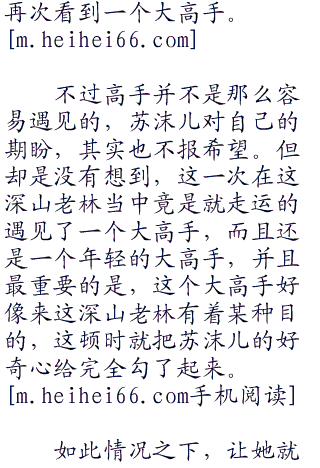 再次看到一个大高手。
[m.heihei66.com]
不过高手并不是那么容
易遇见的，苏沫儿对自己的
期盼，其实也不报希望。但
却是没有想到，这一次在这
深山老林当中竟是就走运的
遇见了一个大高手，而且还
是一个年轻的大高手，并且
最重要的是，这个大高手好
像来这深山老林有着某种目
的，这顿时就把苏沫儿的好
奇心给完全勾了起来。
[m.heihei66.com手机阅读]
如此情况之下，让她就